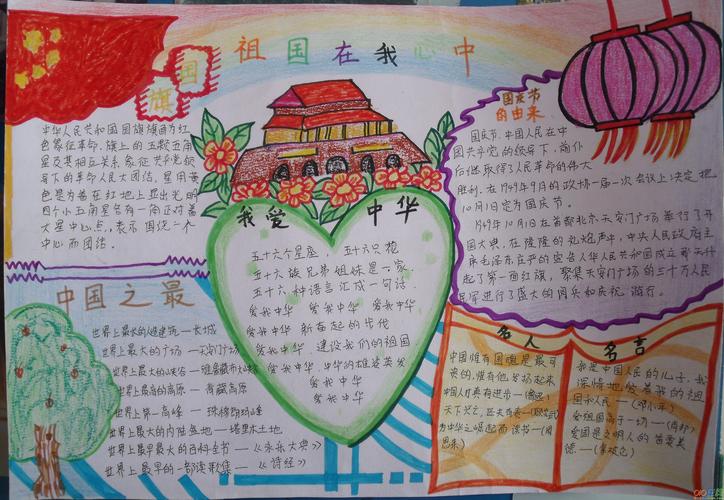 祖国在我心中
国旗
中华人民共和国国旗旗面为红
色象征革命,旗上的五颗五角
星及其相互关系象征共产党领
导下的革命人民大团结,星用黄
色是为着在红地上显出光明
四个小五角星各有一角正对着
大星中心点,表示围绕一个
中心而团结。
中国之最
世界上最大的人造建筑—长城
世界上最大的广场—天安门广场
世界上最大的峡谷—雅鲁藏布大峡谷
世界上最高的高原—青藏高原
世界上第一高峰—珠穆朗玛峰
世界上最大的内陆盆地—塔里木土地
世界上最早最大的百科全书—《永乐大典》
世界上最早的一部诗歌集—《诗经》
我爱中华
五十六个星座,五十六只花
五十六族兄弟姐妹是一家
五十六种语言汇成一句话
爱我中华 爱我中华 爱我中华
爱我中华 新奋起的步伐
爱我中华 建设我们的祖国
爱我中华 中华的雄姿英发
爱我中华
爱我中华
国庆节
的由来
国庆节,中国人民在中
国共产党的领导下,前仆
后继取得了人民革命的伟大
胜利,在1949年9月的政协一届一次会议上决定把
10月1日定为国庆节。
1949年10月1日在首都北京天安门广场举行了开
国大典,在隆隆的礼炮声中,中央人民政府主
席毛泽东庄严的宣告人华人民共和国成立那天升
起了第一面红旗,聚集天安门广场的三十万人民
进行了盛大的阅兵和庆祝游行。
名人
名言
中国惟有国魂是最可
贵的,惟有他发扬起来
中国人才真有进步—(鲁迅)
天下兴亡,匹夫有责—(顾炎武)
为中华之崛起而读书—(周
恩来)
我是中国人民的儿子,我
深情地爱着我的祖
国和人民—(邓小平)
爱祖国高于一切—(肖邦)
爱国是文明人的首要美
德—(拿破仑)